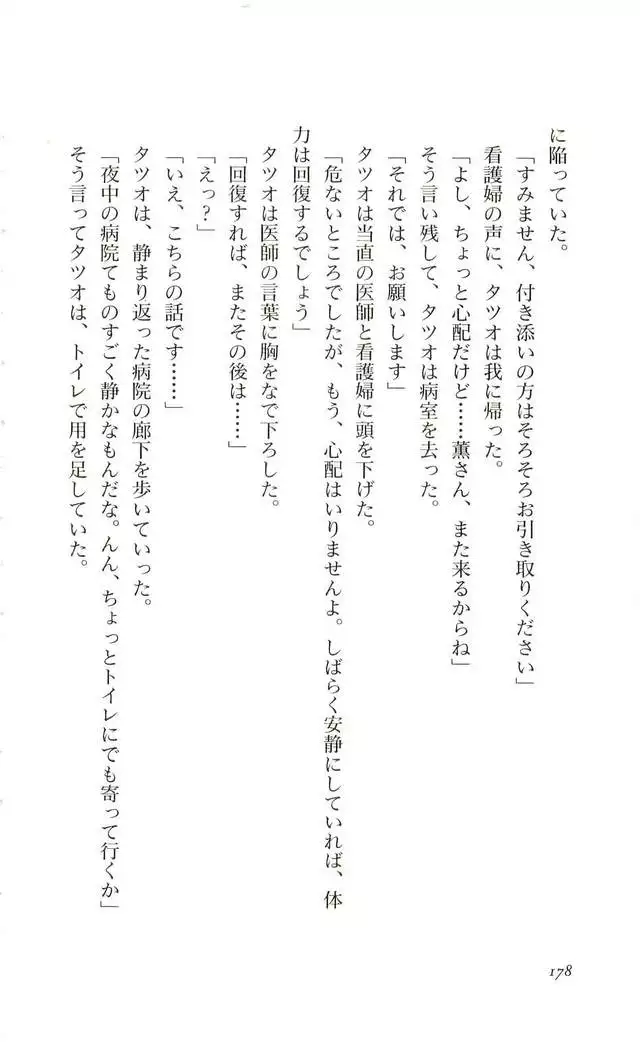 に陥っていた。
「すみません、付き添いの方はそろそろお引き取りください」
看護婦の声に、タツオは我に帰った。
「よし、ちょっと心配だけど……薫さん、また来るからね」
そう言い残して、タツオは病室を去った。
「それでは、お願いします」
タツオは当直の医師と看護婦に頭を下げた。
「危ないところでしたが、もう、心配はいりませんよ。しばらく安静にしていれば、体
力は回復するでしょう」
タツオは医師の言葉に胸をなで下ろした。
「回復すれば、またその後は……」
「えっ？」
「いえ、こちらの話です……」
タツオは、静まり返った病院の廊下を歩いていった。
「夜中の病院てものすごく静かなもんだな。んん、ちょっとトイレにでも寄って行くか」
そう言ってタツオは、トイレで用を足していた。
178